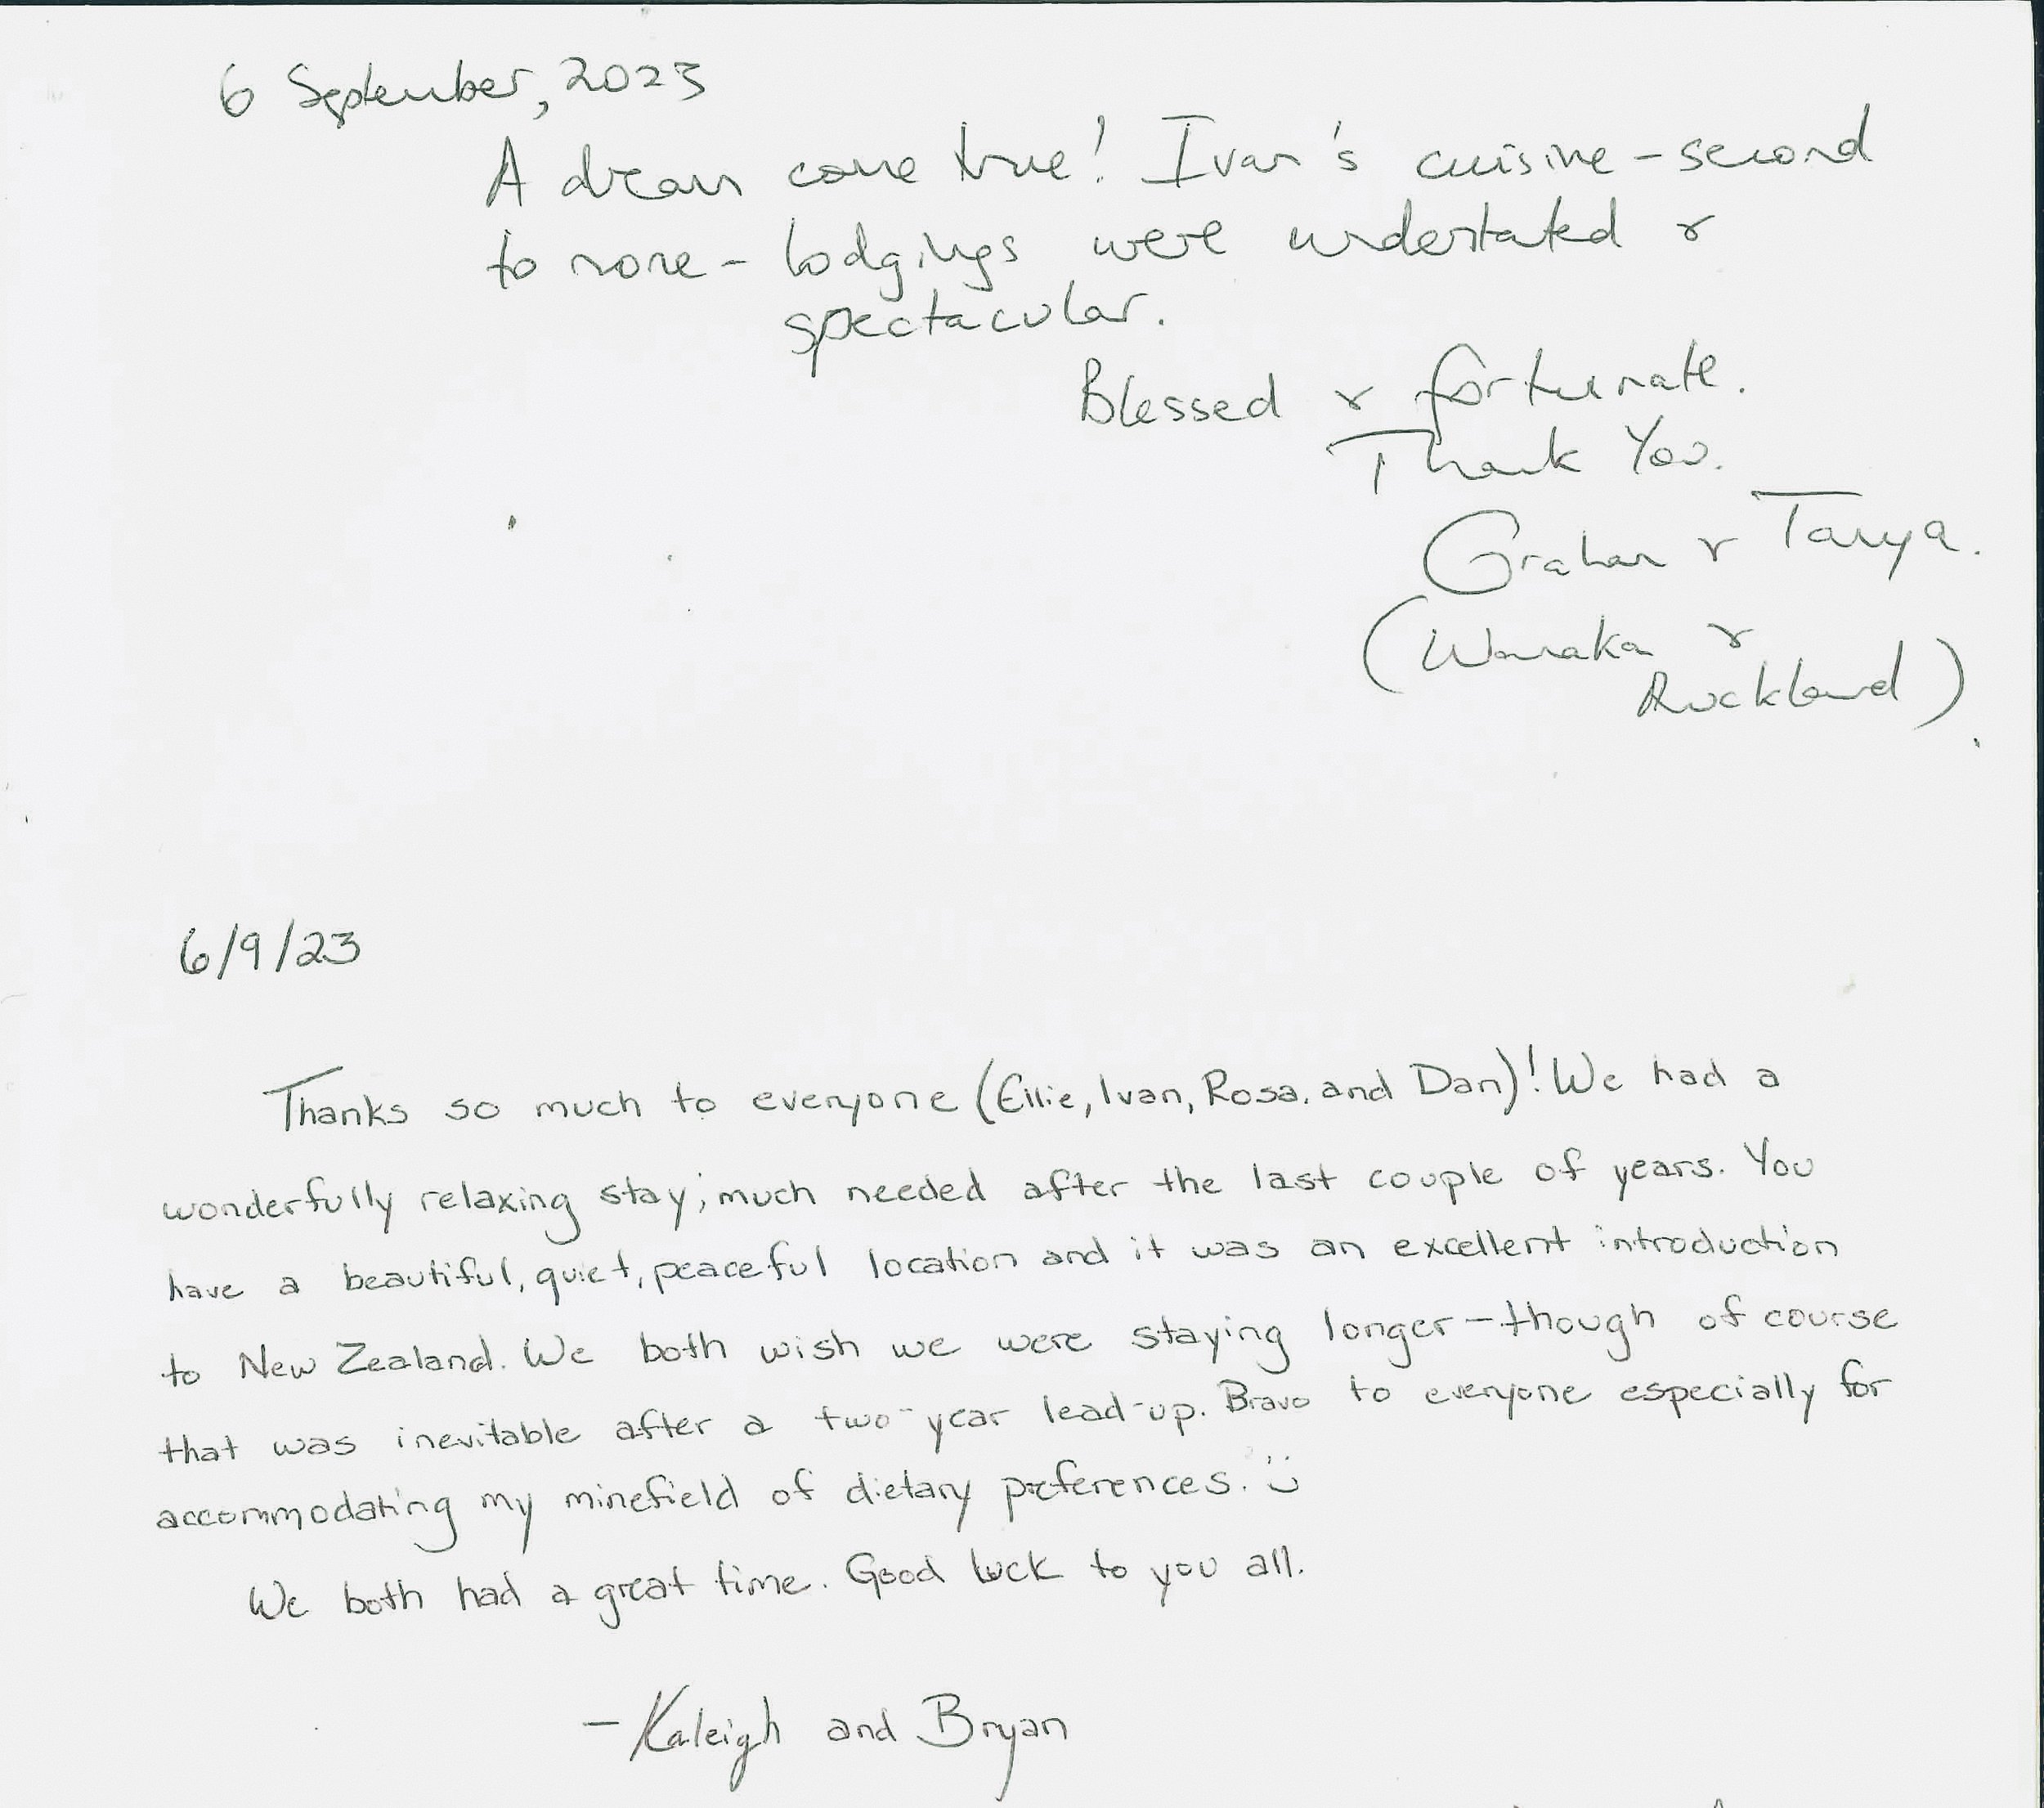 6 September, 2023
A dream come true! Ivan's cuisine - second
to none - lodgings were understated &
spectacular.
Blessed & fortunate.
Thank You.
Graham & Tanya.
(Wanaka &
Auckland)
6/9/23
Thanks so much to everyone (Ellie, Ivan, Rosa, and Dan)! We had a
wonderfully relaxing stay; much needed after the last couple of years. You
have a beautiful, quiet, peaceful location and it was an excellent introduction
to New Zealand. We both wish we were staying longer - though of course
that was inevitable after a two-year lead-up. Bravo to everyone especially for
accommodating my minefield of dietary preferences. :)
We both had a great time. Good luck to you all.
- Kaleigh and Bryan